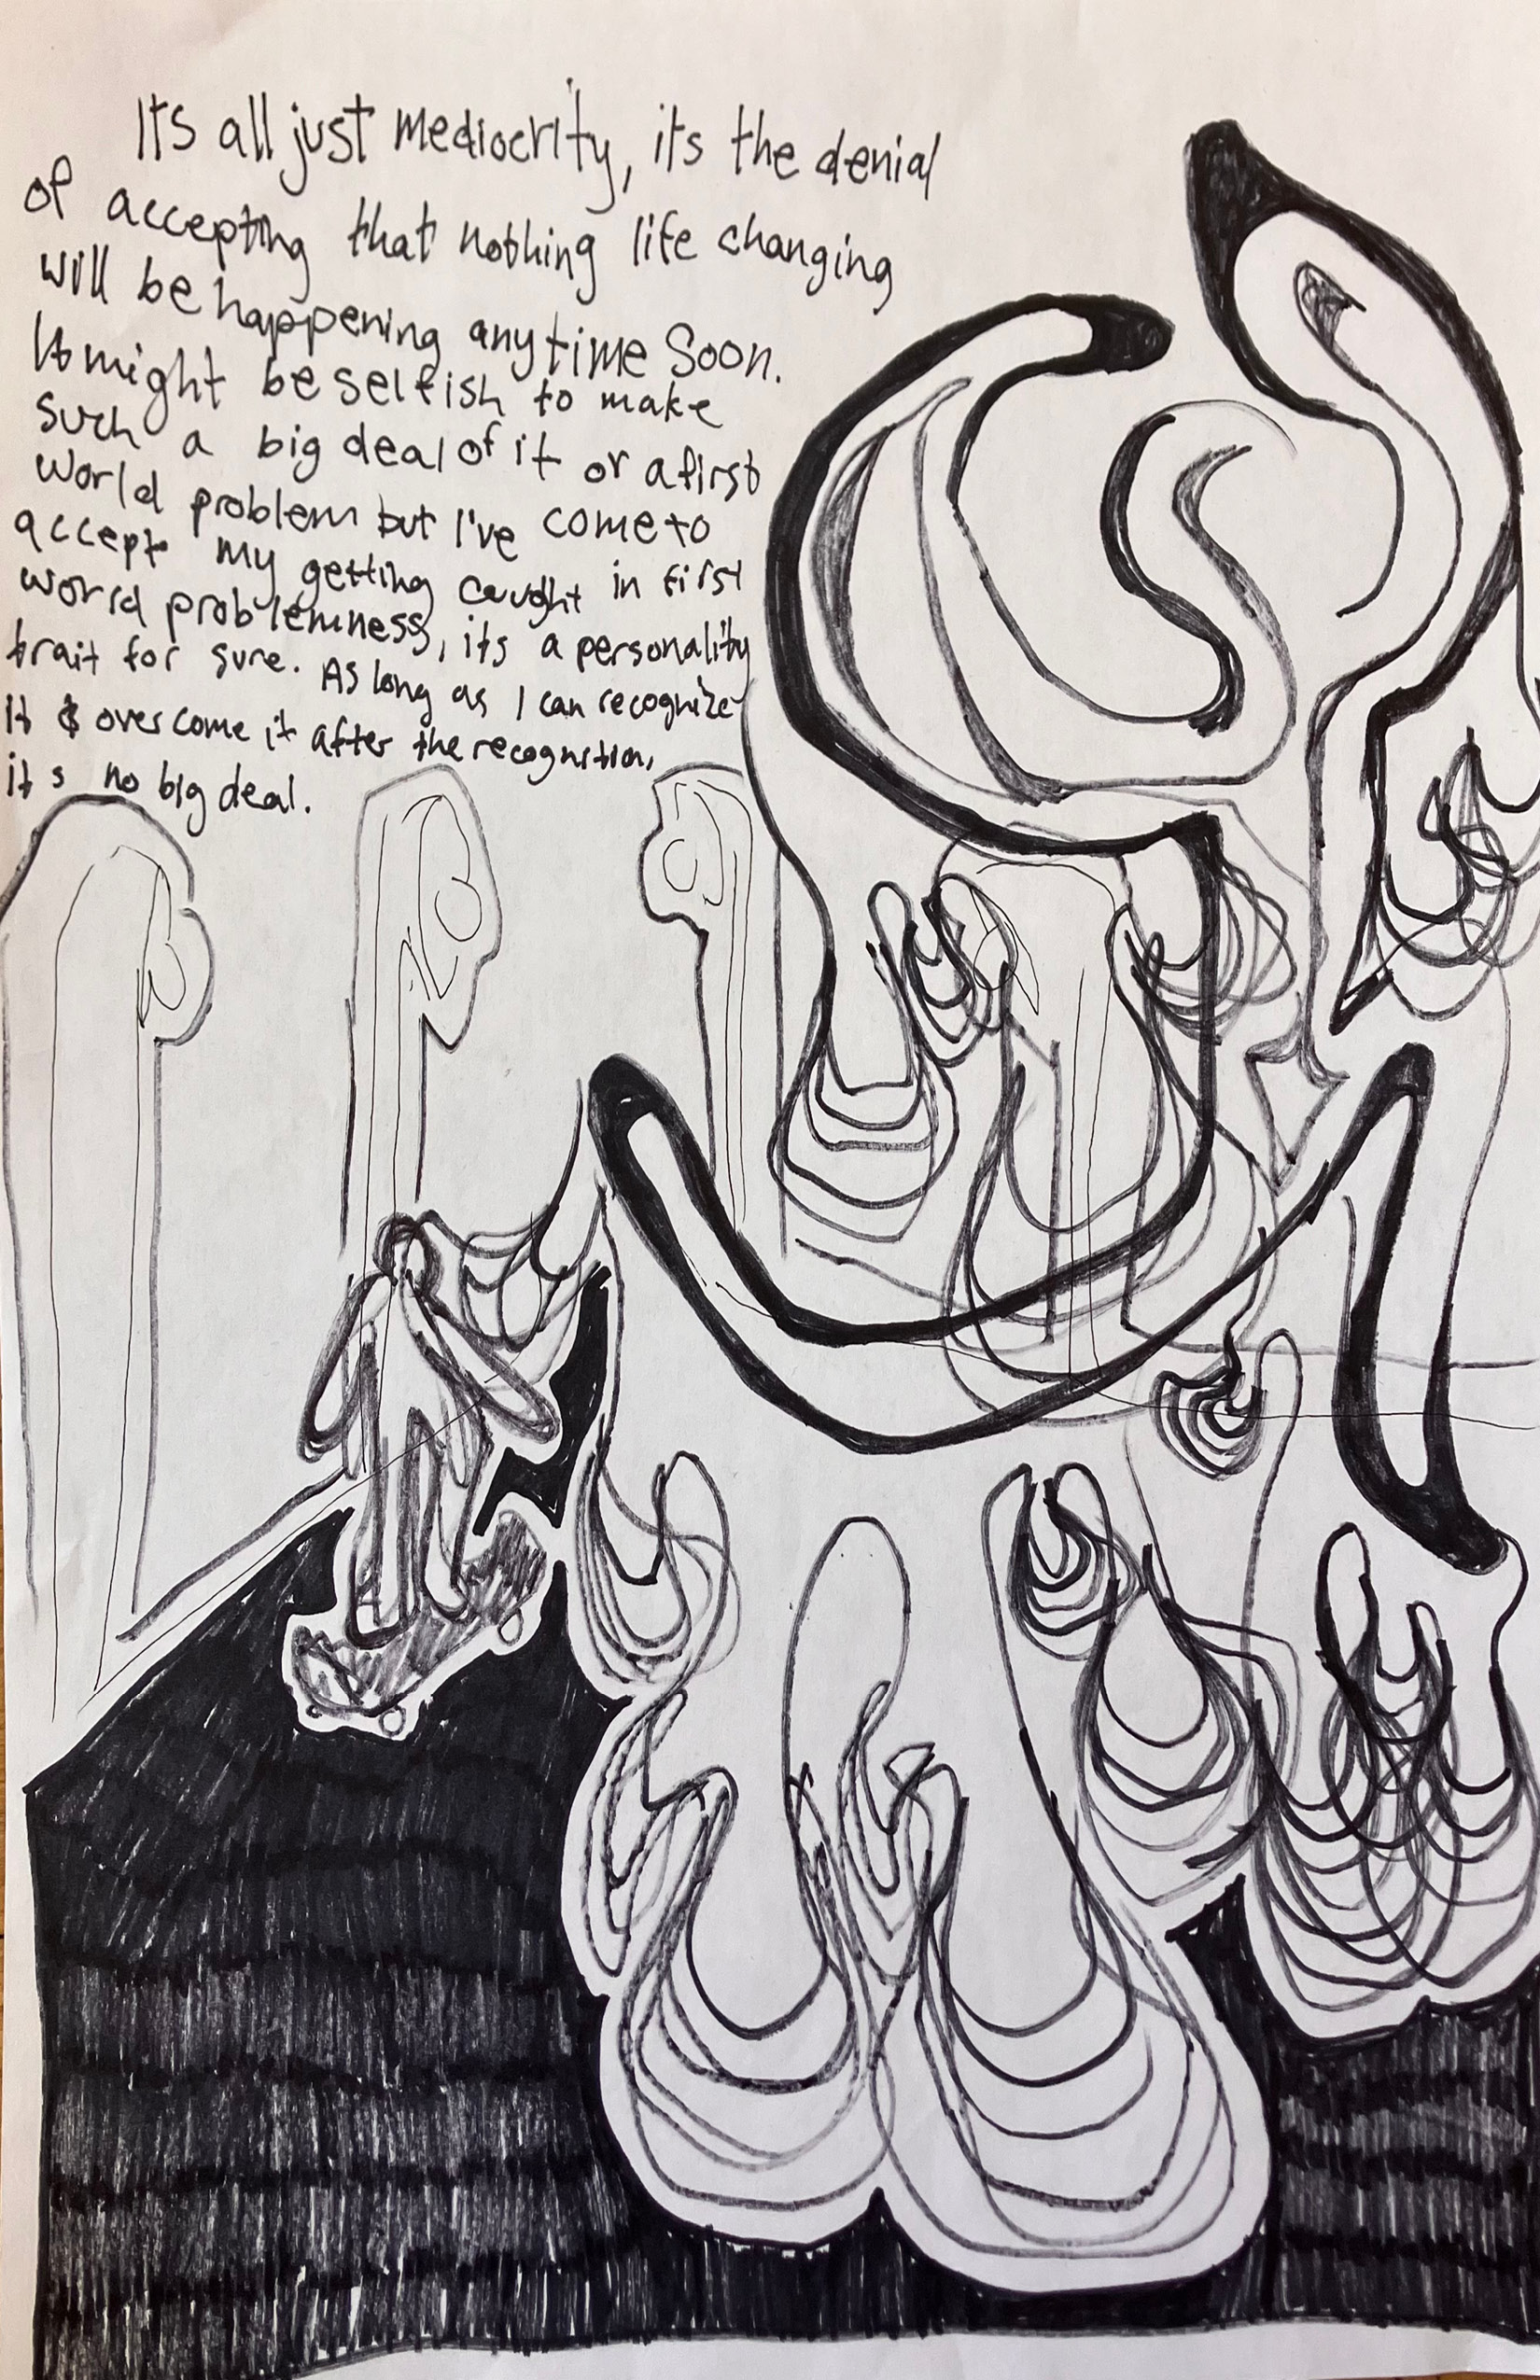 Its all just mediocrity, its the denial
of accepting that nothing life changing
will be happening anytime soon.
It might be selfish to make
such a big deal of it or a first
world problem but I've come to
accept my getting caught in first
world problemness, its a personality
trait for sure. As long as I can recognize
it & overcome it after the recognition,
its no big deal.